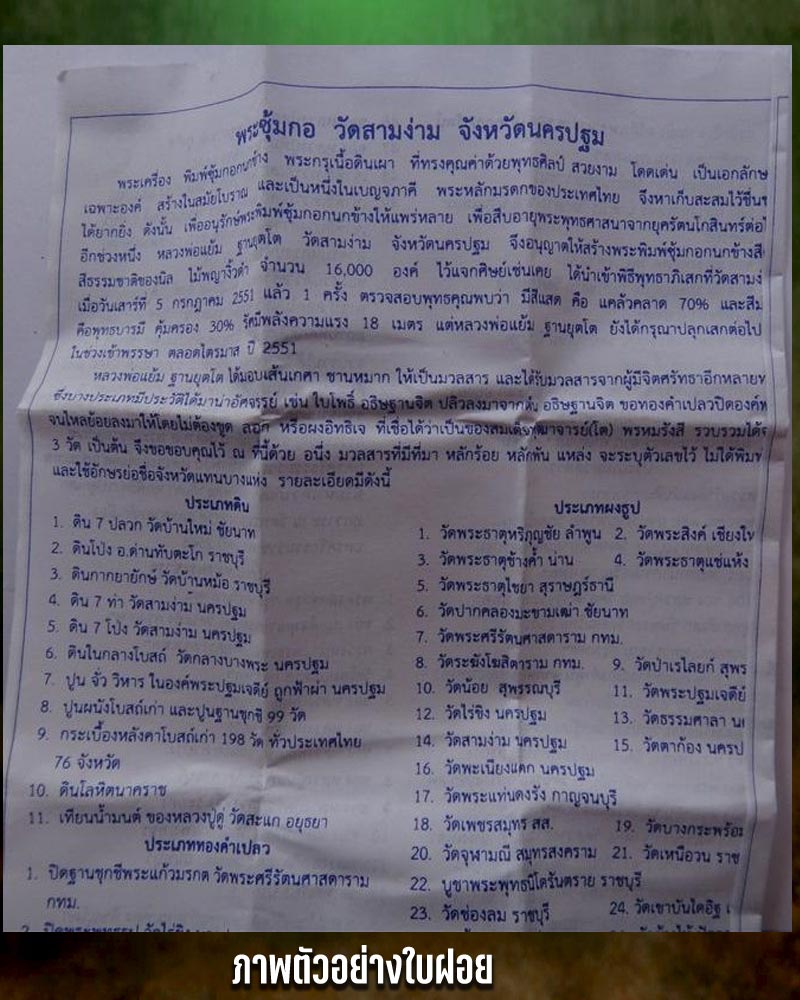 พระซุ้มกอ วัดสามง่าม จังหวัดนครปฐม
พระเครื่อง พิมพ์ซุ้มกอกนกข้าง พระกรุเนื้อดินเผา ที่ทรงคุณค่าด้วยพุทธศิลป์ สวยงาม โดดเด่น เป็นเอกลักษ
เฉพาะองค์ สร้างในสมัยโบราณ และเป็นหนึ่งในเบญจภาคี พระหลักมรดกของประเทศไทย จึงหาเก็บสะสมไว้ชื่นช
ได้ยากยิ่ง ดังนั้น เพื่ออนุรักษ์พระพิมพ์ซุ้มกอกนกข้างให้แพร่หลาย เพื่อสืบอายุพระพุทธศาสนาจากยุครัตนโกสินทร์ต่อไ
อีกช่วงหนึ่ง หลวงพ่อแย้ม ฐานยุตโต วัดสามง่าม จังหวัดนครปฐม จึงอนุญาตให้สร้างพระพิมพ์ซุ้มกอกนกข้างสี
สีธรรมชาติของนิล ไม้พญางิ้วดำ จำนวน 16,000 องค์ ไว้แจกศิษย์เช่นเคย ได้นำเข้าพิธีพุทธาภิเสกที่วัดสามง่
เมื่อวันเสาร์ที่ 5 กรกฎาคม 2551 แล้ว 1 ครั้ง ตรวจสอบพุทธคุณพบว่า มีสีแสด คือ แคล้วคลาด 70% และสีม
คือพุทธบารมี คุ้มครอง 30% รัศมีพลังความแรง 18 เมตร แต่หลวงพ่อแย้ม ฐานยุตโต ยังได้กรุณาปลุกเสกต่อไป
ในช่วงเข้าพรรษา ตลอดไตรมาส ปี 2551
หลวงพ่อแย้ม ฐานยุตโต ได้มอบเส้นเกศา ชานหมาก ให้เป็นมวลสาร และได้รับมวลสารจากผู้มีจิตศรัทธาอีกหลายท
ซึ่งบางประเภทมีประวัติได้มาน่าอัศจรรย์ เช่น ใบโพธิ์ อธิษฐานจิต ปลิวลงมาจากต้น อธิษฐานจิต ขอทองคำเปลวปิดองค์พ
จนไหลย้อยลงมาให้โดยไม่ต้องขูด ลอก หรือผงอิทธิเจ ที่เชื่อได้ว่าเป็นของสมเด็จพุฒาจารย์(โต) พรหมรังสี รวบรวมได้จ
3 วัด เป็นต้น จึงขอขอบคุณไว้ ณ ที่นี้ด้วย อนึ่ง มวลสารที่มีที่มา หลักร้อย หลักพัน แหล่ง จะระบุตัวเลขไว้ ไม่ได้พิมพ์
และใช้อักษรย่อชื่อจังหวัดแทนบางแห่ง รายละเอียดมีดังนี้
ประเภทดิน
1. ดิน 7 ปลวก วัดบ้านใหม่ ชัยนาท
2. ดินโป่ง อ.ด่านทับตะโก ราชบุรี
3. ดินกากยายักษ์ วัดบ้านหม้อ ราชบุรี
4. ดิน 7 ท่า วัดสามง่าม นครปฐม
5. ดิน 7 โป่ง วัดสามง่าม นครปฐม
6. ดินในกลางโบสถ์ วัดกลางบางพระ นครปฐม
7. ปูน จั่ว วิหาร ในองค์พระปฐมเจดีย์ ถูกฟ้าผ่า นครปฐม
8. ปูนผนังโบสถ์เก่า และปูนฐานชุกชี 99 วัด
9. กระเบื้องหลังคาโบสถ์เก่า 198 วัด ทั่วประเทศไทย
76 จังหวัด
10. ดินโลหิตนาคราช
11. เทียนน้ำมนต์ ของหลวงปู่ดู่ วัดสะแก อยุธยา
ประเภททองคำเปลว
1. ปิดฐานชุกชีพระแก้วมรกต วัดพระศรีรัตนศาสดาราม
กทม.
ประเภทผงธูป
1. วัดพระธาตุหริภุญชัย ลำพูน 2. วัดพระสิงค์ เชียงให
3. วัดพระธาตุช้างค้ำ น่าน 4. วัดพระธาตุแช่แห้ง
5. วัดพระธาตุไชยา สุราษฎร์ธานี
6. วัดปากคลองมะขามเฒ่า ชัยนาท
7. วัดพระศรีรัตนศาสดาราม กทม.
8. วัดระฆังโฆสิตาราม กทม. 9. วัดป่าเรไลยก์ สุพร
10. วัดน้อย สุพรรณบุรี 11. วัดพระปฐมเจดีย์
12. วัดไร่ขิง นครปฐม 13. วัดธรรมศาลา น
14. วัดสามง่าม นครปฐม 15. วัดตาก้อง นครป
16. วัดพะเนียงแตก นครปฐม
17. วัดพระแท่นดงรัง กาญจนบุรี
18. วัดเพชรสมุทร สส. 19. วัดบางกระพร้อม
20. วัดจุฬามณี สมุทรสงคราม 21. วัดเหนือวน ราช
22. บูชาพระพุทธนิโตรันตราย ราชบุรี
23. วัดช่องลม ราชบุรี 24. วัดเขาบันไดอิฐ เ
ภาพตัวอย่างใบฝอย